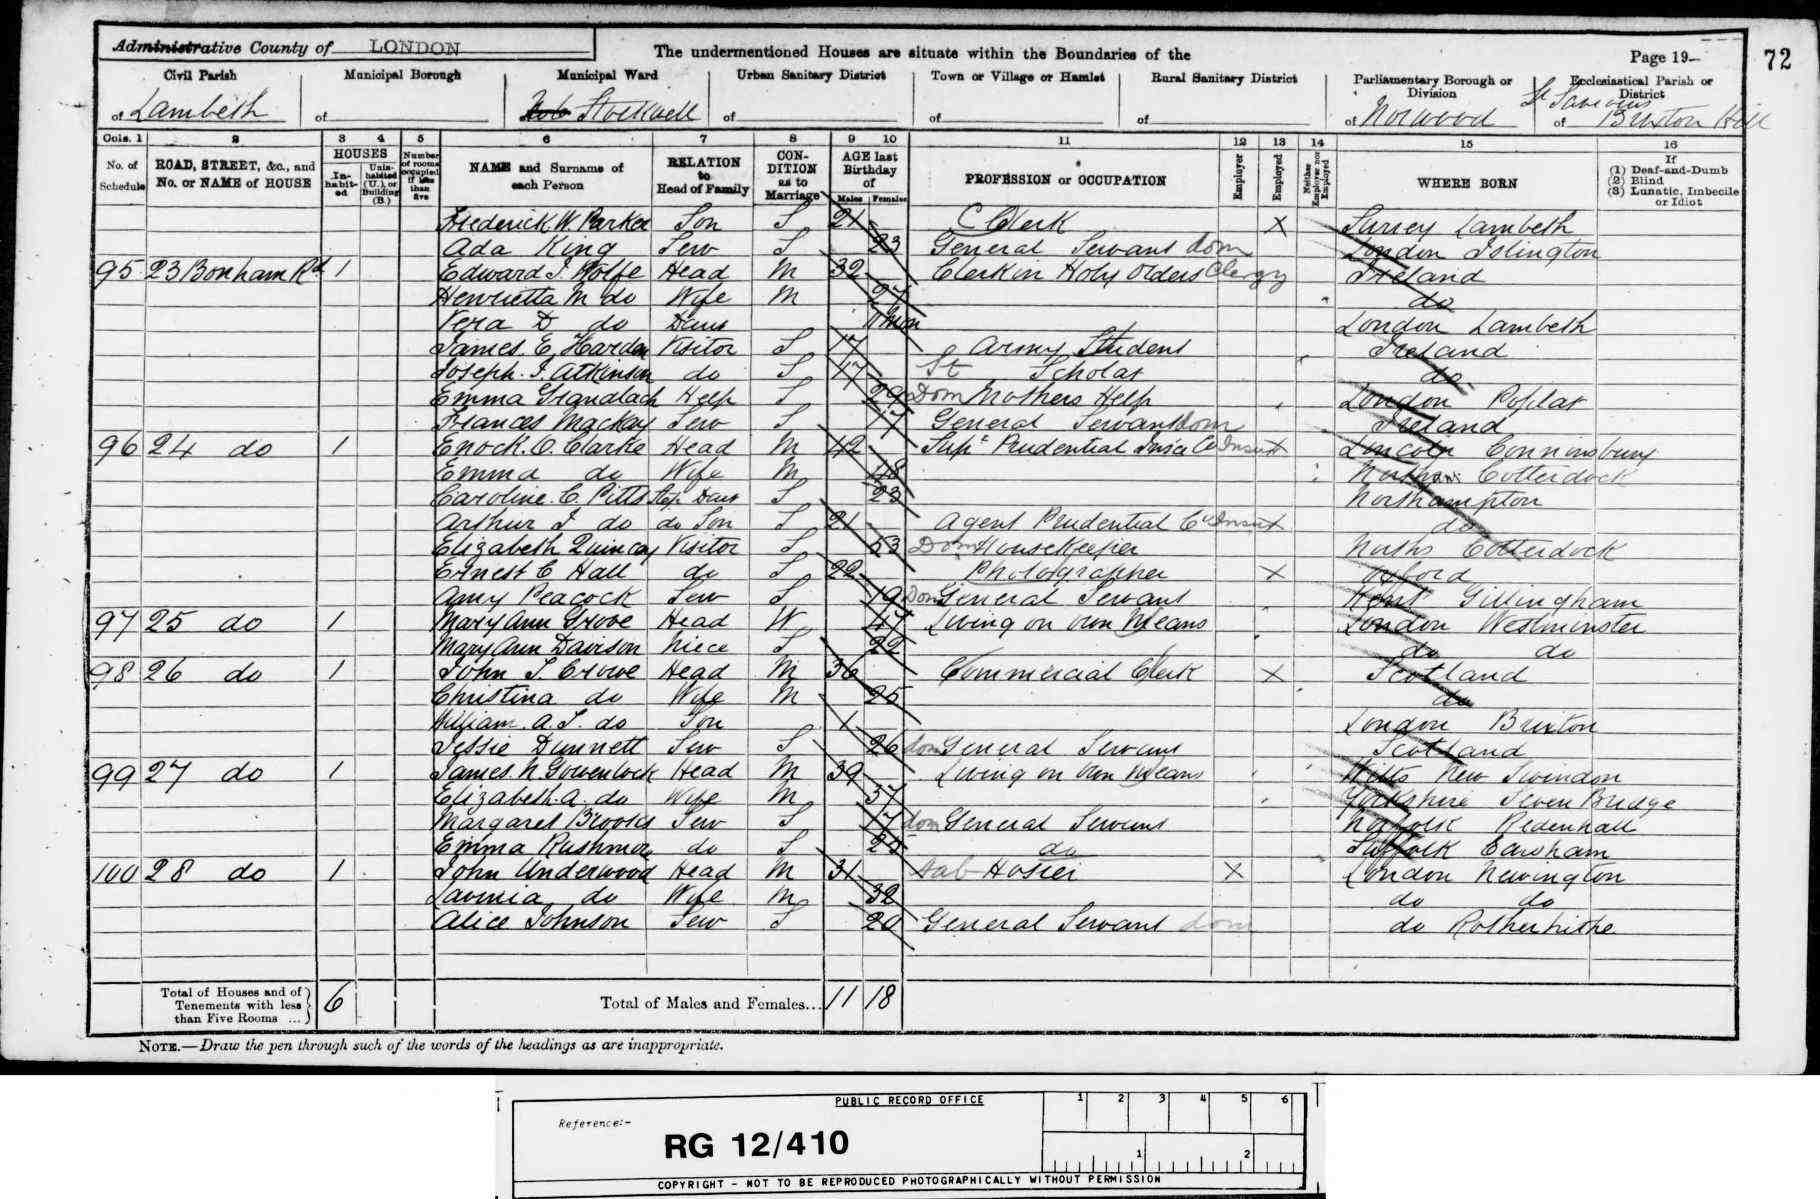 Administrative County of LONDON
The undermentioned Houses are situate within the Boundaries of the
Page 19
72
Civil Parish
Municipal Borough
Municipal Ward
Urban Sanitary District
Town or Village or Hamlet
Rural Sanitary District
Parliamentary Borough or Division
Ecclesiastical Parish or District
of Lambeth
of
Stockwell
of
of
of
of Norwood
of St Saviours Brixton Hill
Cols. 1 2 3 4 5 6 7 8 9 10 11 12 13 14 15 16
No. of Schedule
ROAD, STREET, &c., and No. or NAME of HOUSE
HOUSES
In-habit-ed
Unin-habited (U.), or Building (B.)
Number of rooms occupied if less than five
NAME and Surname of each Person
RELATION to Head of Family
CON-DITION as to Marriage
AGE last Birthday of
Males Females
PROFESSION or OCCUPATION
Employer
Employed
Neither Employer nor Employed
WHERE BORN
If
(1) Deaf-and-Dumb
(2) Blind
(3) Lunatic, Imbecile or Idiot
Frederick W. Parker Son S 21 C Clerk X Surrey Lambeth
Ada King Serv S 23 General Servant dom London Islington
95 23 Bonham Rd 1 Edward J. Wolfe Head M 32 Clerk in Holy Orders Clergy Ireland
Henrietta M do Wife M 27 do
Vera D do Daur 11 mon London Lambeth
James E. Harden Visitor S 17 Army Student Ireland
Joseph J. Atkinson do S 17 St Scholar do
Emma Help S 29 Dom Mothers Help London Poplar
Frances Mackay Serv S 17 General Servant dom Ireland
96 24 do 1 Enock. O. Clarke Head M 42 Supt Prudential Insce Co Insur X Lincoln Conninsbury
Emma do Wife M 48 Northam Cotterdock
Caroline. C. Pitts Step Daur S 23 Northampton
Arthur J do do Son S 21 Agent Prudential Co Insur X do
Elizabeth Quincay Visitor S 53 Dom Housekeeper Norths Cotterdock
Ernest C Hall do S 22 Photographer X Oxford
Amy Peacock Serv S 19 Dom General Servant Kent Gillingham
97 25 do 1 Mary Ann Grove Head W 47 Living on own Means London Westminster
Mary Ann Davison Niece S 22 do do
98 26 do 1 John S. Crowe Head M 36 Commercial Clerk X Scotland
Christina do Wife M 25 do
William. A. J. do Son 1 London Brixton
Jessie Dunnett Serv S 26 dom General Servant Scotland
99 27 do 1 James. N. Gowenlock Head M 39 Living on own Means Wilts New Swindon
Elizabeth. A. do Wife M 37 Yorkshire Seven Bridge
Margaret Brooks Serv S 17 dom General Servant Norfolk Redenhall
Emma Rushmore do S 25 do Suffolk Earsham
100 28 do 1 John Underwood Head M 31 Hosier X London Newington
Lavinia do Wife M 32 do do
Alice Johnson Serv S 20 General Servant dom do Rotherhithe
Total of Houses and of Tenements with less than Five Rooms ... 6
Total of Males and Females... 11 18
NOTE.—Draw the pen through such of the words of the headings as are inappropriate.
PUBLIC RECORD OFFICE
1 2 3 4 5 6
Reference:-
RG 12/410
1 2
COPYRIGHT - NOT TO BE REPRODUCED PHOTOGRAPHICALLY WITHOUT PERMISSION